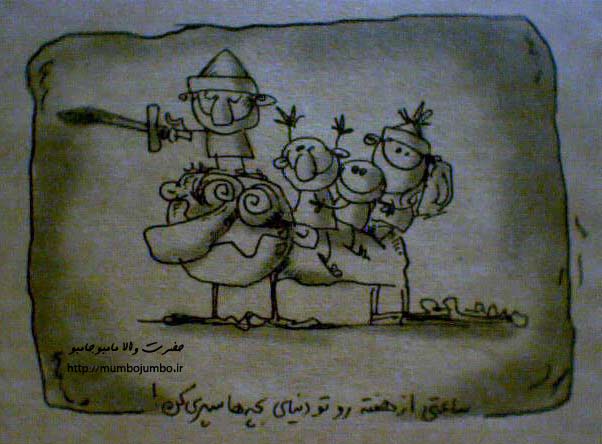 حضرت والا مامبو جامبو
http://mumbojumbo.ir
ساعتی از هفته رو تو دنیای بچه‌ها سپری کن!